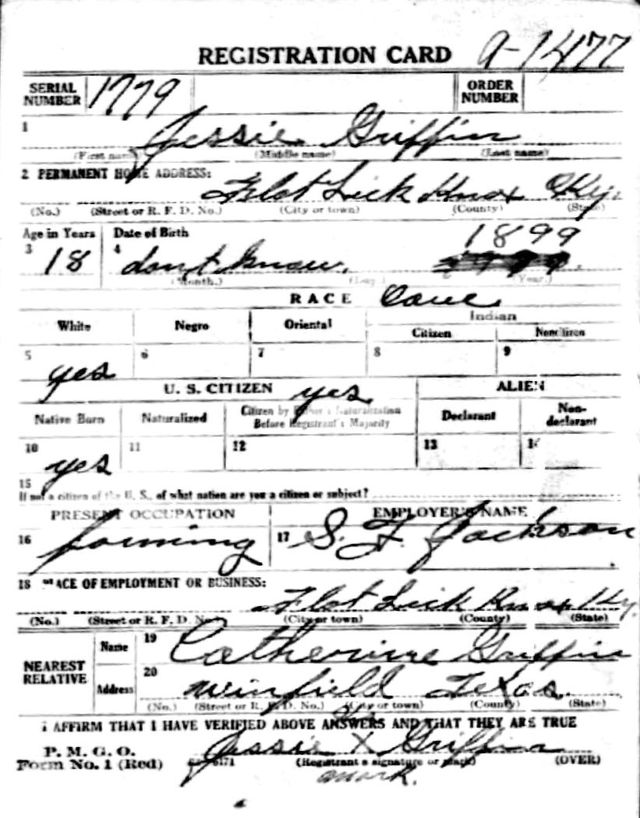 REGISTRATION CARD a-1477
SERIAL NUMBER 1779 ORDER NUMBER
1 Jessie Griffin
(First name) (Middle name) (Last name)
2 PERMANENT HOME ADDRESS:
Flat Lick Knox Ky.
(No.) (Street or R. F. D. No.) (City or town) (County) (State)
Age in Years Date of Birth 1899
3 18 4 dont know.
(Month.) (Day.) (Year.)
RACE
White Negro Oriental Indian
Citizen Noncitizen
5 yes 6 7 8 9
U. S. CITIZEN yes ALIEN
Native Born Naturalized Citizen by Father's Naturalization Before Registrant's Majority Declarant Non-declarant
10 yes 11 12 13 14
15
If not a citizen of the U. S., of what nation are you a citizen or subject?
PRESENT OCCUPATION EMPLOYER'S NAME
16 farming 17 S. F. Jackson
18 PLACE OF EMPLOYMENT OR BUSINESS:
Flat Lick Knox Ky.
(No.) (Street or R. F. D. No.) (City or town) (County) (State)
NEAREST RELATIVE Name 19 Catherine Griffin
Address 20 Winfield Texas.
(No.) (Street or R. F. D. No.) (City or town) (County) (State)
I AFFIRM THAT I HAVE VERIFIED ABOVE ANSWERS AND THAT THEY ARE TRUE
P. M. G. O.
Form No. 1 (Red) Jessie X Griffin
(Registrant's signature or mark) (OVER)
mark.